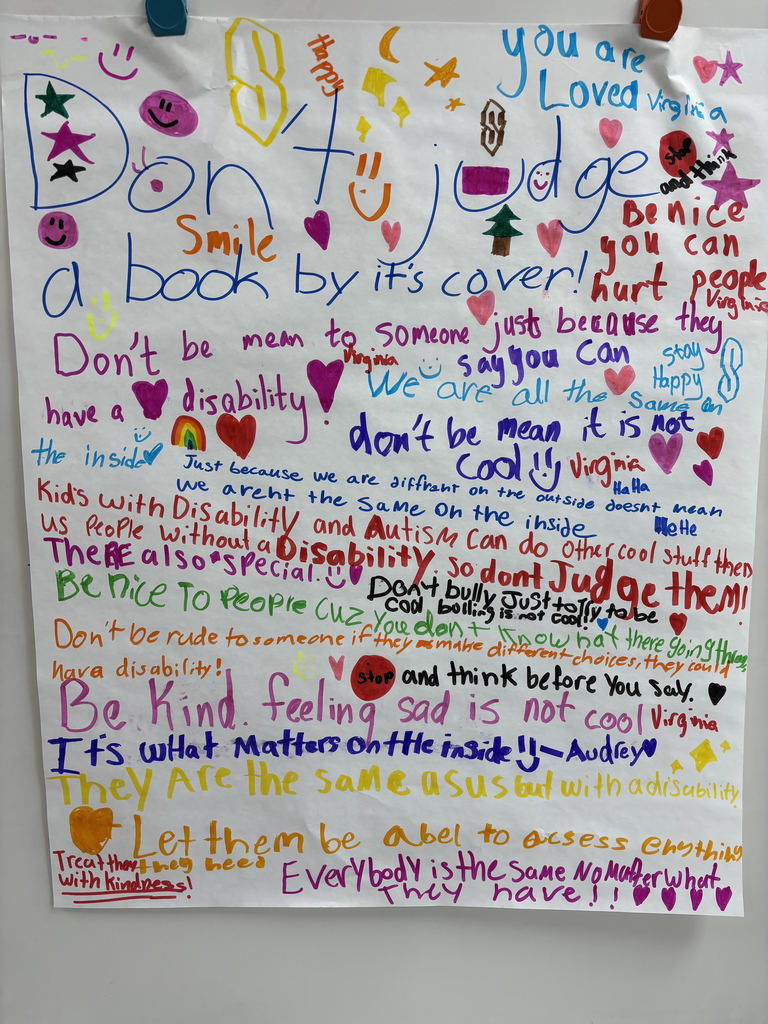 Happy
you are
Loved Virginia
Don't judge
stop
and think
Smile
Be nice
you can
hurt people
Virginia
a book by it's cover!
Don't be mean to someone just because they
have a disability!
Virginia
say you can
Stay
Happy
We are all the same on
the inside
don't be mean it is not
cool!! Virginia
HaHa
HeHe
Just because we are diffrent on the outside doesnt mean
we arent the same on the inside
Kid's with Disability and Autism can do other cool stuff then
us People without a Disability. so dont Judge them!
There also special.
Don't bully Just to Try to be
cool bolling is not cool!!
Be nice To People cuz You don't know hat there going throu
Don't be rude to someone if they make different choices, they could
hava disability!
stop and think before You say.
Be Kind. feeling sad is not cool Virginia
It's wHat Matters on tHe inside!! - Audrey
They Are the same as us but with a disability.
Let them be abel to acsess enything
they need
Treat them
with kindness!
Everybody is the same No Matter what
They have!!